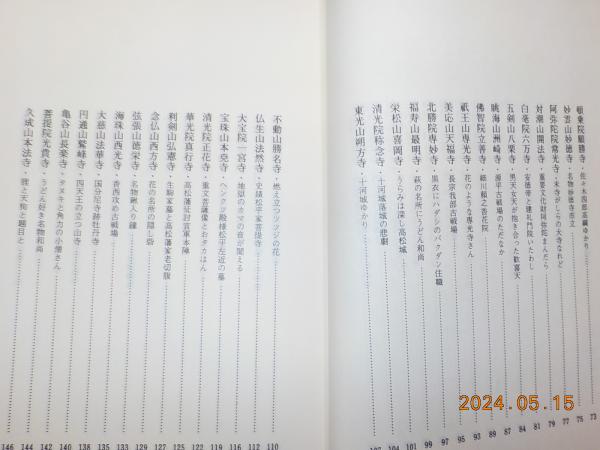 頓乗院願勝寺・佐々木四郎高綱ゆかり 73
妙雲山妙徳寺・名物妙徳寺市立 75
阿弥陀院常光寺・末寺がしらの大寺なれど 77
対潮山開法寺・重要文化財阿弥陀まんだら 79
白毫院六万寺・安徳帝と建礼門院いたわし 81
五剣山八栗寺・男天女天が抱き合った歓喜天 84
眺海山洲崎寺・源平古戦場のただなか 87
佛智院立善寺・細川頼之香花院 89
祇王山専光寺・花のような専光寺さん 93
美応山天福寺・長宗我部古戦場 95
北勝院専妙寺・黒衣にハダシのバクダン住職 97
福寿山最明寺・萩の名所にうどん和尚 99
栄松山喜岡寺・うらみは深し高松城 101
清光院称念寺・十河城落城の悲劇 104
東光山朔方寺・十河城ゆかり 107
不動山勝名寺・燃え立つツツジの花 110
仏生山法然寺・史績松平家菩提寺 112
大宝院一宮寺・地獄のカマの音が聞える 116
宝珠山本堯寺・ヘンクツ殿様松平左近の墓 119
清光院正花寺・重文菩薩像とおタカはん 122
華光院真行寺・高松藩征討官軍本陣 125
利剣山弘憲寺・生駒家墓と高松藩家老切腹 127
念仏山西方寺・花の名所の隠し砦 131
弦張山徳栄寺・名物鍬入り鐘 132
海珠山西光寺・香西攻め古戦場 133
大慈山法華寺・国分尼寺跡牡丹寺 135
円通山鷲峰寺・四天王の立つ山寺 138
亀谷山長楽寺・タヌキと角力の小僧さん 140
菩提院光貴寺・うどん好き名物和尚 142
久成山本法寺・鐙と天狗と題目と 144
146
2024.05.15